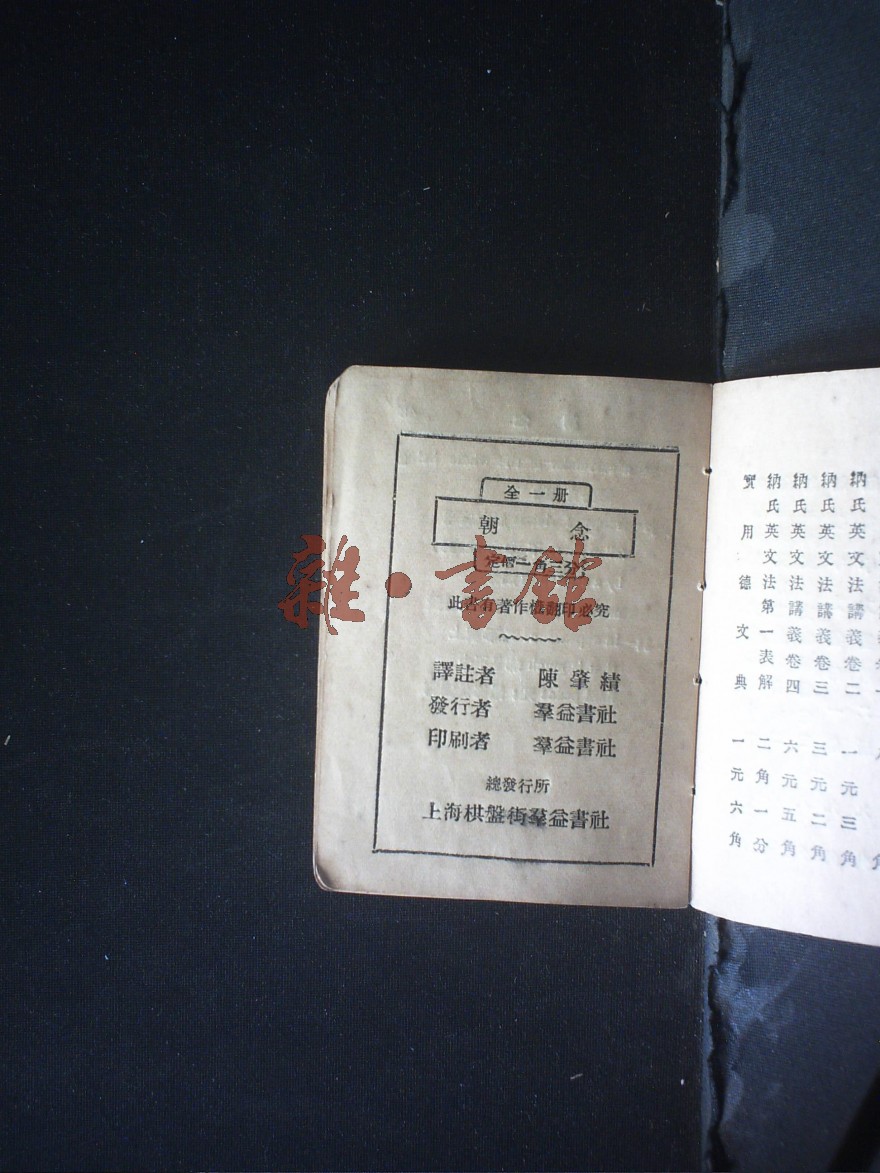 全一册
朝念
定價一角
此書有著作權翻印必究
譯註者 陳肇績
發行者 羣益書社
印刷者 羣益書社
總發行所
上海棋盤街羣益書社
納氏英文法講義卷二 一元三角
納氏英文法講義卷三 三元二角
納氏英文法講義卷四 六元五角
納氏英文法第一表解 二角一分
實用德文典 一元六角
雜·書館